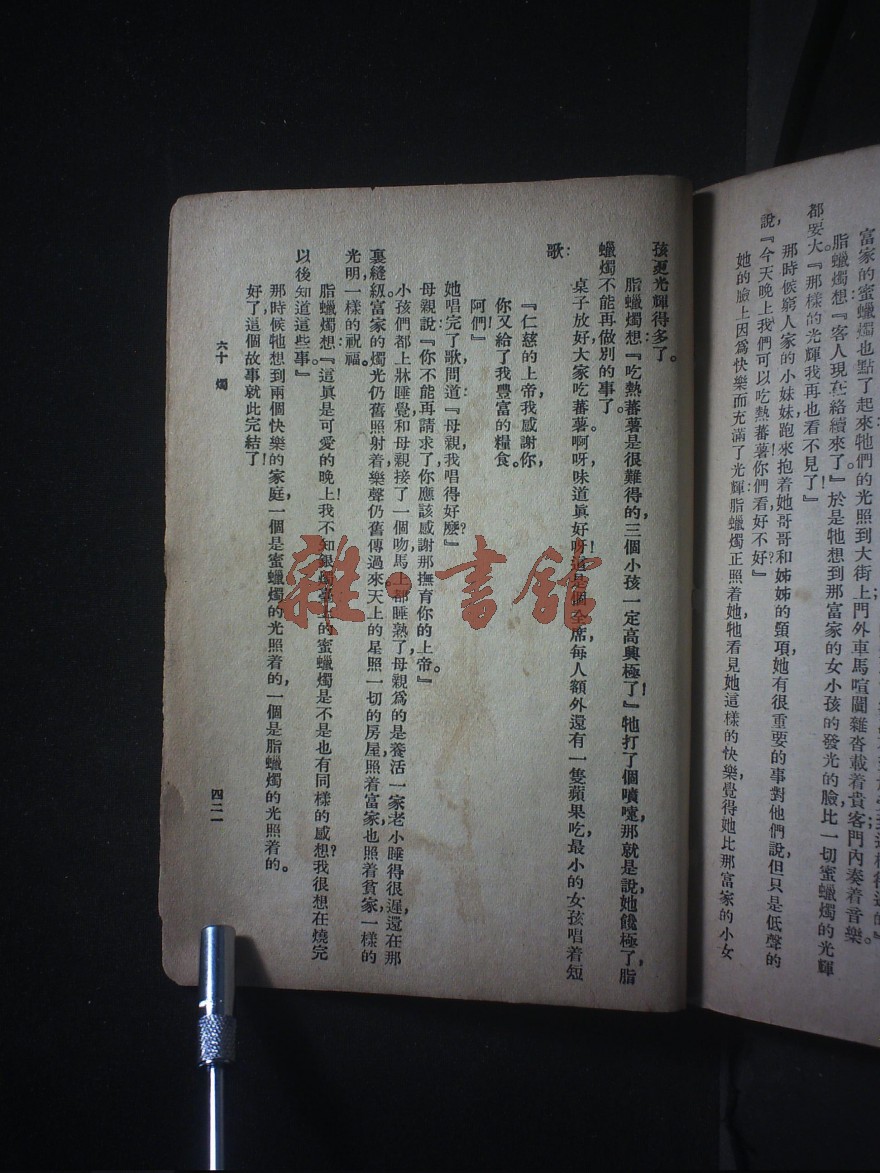 富家的蜜蠟燭也點了起來牠們的光照到大街上門外車馬喧闐雜沓載着貴客門內奏着音樂。
脂蠟燭想：『客人現在絡續來了。』於是牠想到那富家的女小孩的發光的臉比一切蜜蠟燭的光輝
都要大『那樣的光輝我再也看不見了！』
那時候窮人家的小妹妹跑來抱着她哥哥和姊姊的頸項，她有很重要的事對他們說，但只是低聲的
說，『今天晚上我們可以吃熱蕃薯！你們看好不好？』
她的臉上因爲快樂而充滿了光輝；脂蠟燭正照着她，牠看見她這樣的快樂，覺得她比那富家的小女
孩更光輝得多了。
脂蠟燭想：『吃熱蕃薯是很難得的，三個小孩一定高興極了！』牠打了個噴嚏，那就是說她饞極了，脂
蠟燭不能再做別的事了。
桌子放好大家吃蕃薯。啊呀味道眞好呀！這是個全席，每人額外還有一隻蘋果吃，最小的女孩唱着短
歌：
『仁慈的上帝，我感謝你，
你又給了我豐富的糧食。
阿們！』
她唱完了歌問道：『母親，我唱得好麼？』
母親說：『你不能再請求了，你應該感謝那撫育你的上帝。』
小孩們都上牀睡覺和母親接了一個吻，馬上都睡熟了。母親爲的是養活一家老小睡得很遲，還在那
裏縫紉。富家的燭光仍舊照射着，樂聲仍舊傳過來。天上的星照一切的房屋，照着富家也照着貧家，一樣的
光明，一樣的祝福。
脂蠟燭想：『這眞是可愛的晚上！我不知銀燭臺上的蜜蠟燭是不是也有同樣的感想？我很想在燒完
以後知道這些事。』
那時候牠想到兩個快樂的家庭，一個是蜜蠟燭的光照着的，一個是脂蠟燭的光照着的。
好了！這個故事就此完結了！
六十 燭
四二一
雜·書館